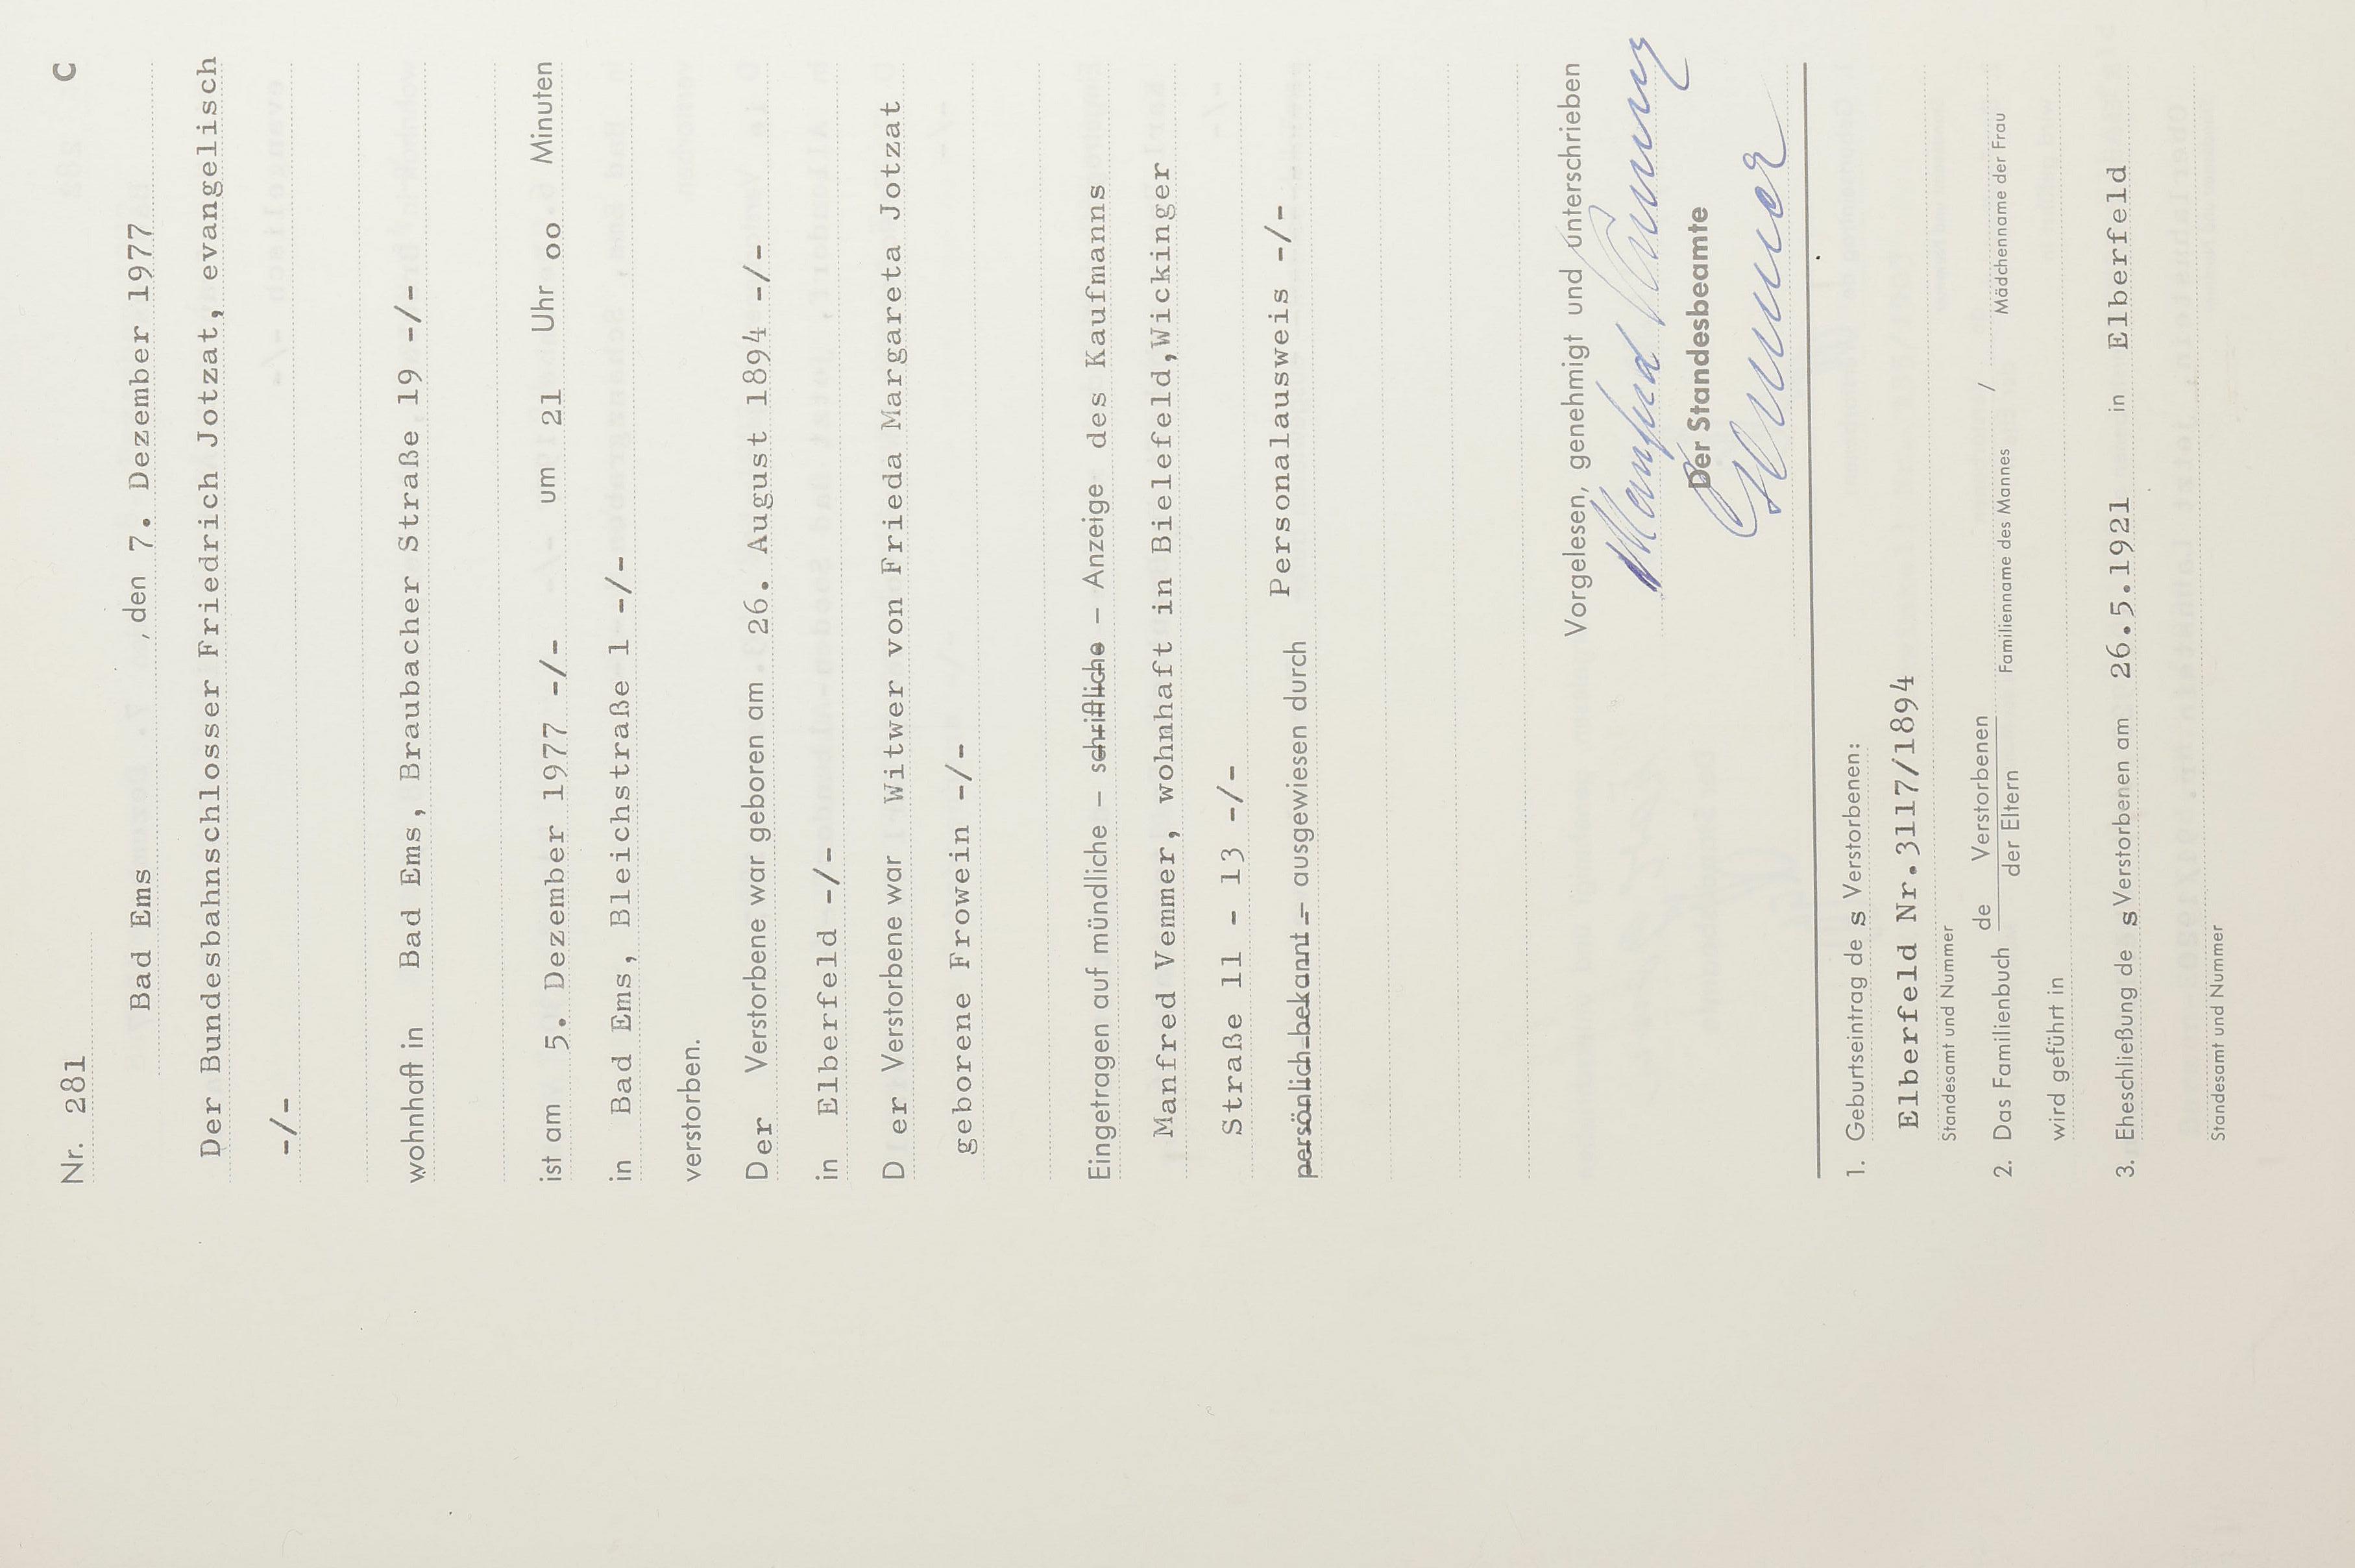 Nr. 281 C
Bad Ems, den 7. Dezember 1977
Der Bundesbahnschlosser Friedrich Jotzat, evangelisch
-/-
wohnhaft in Bad Ems, Braubacher Straße 19 -/-
ist am 5. Dezember 1977 -/- um 21 Uhr oo Minuten
in Bad Ems, Bleichstraße 1 -/-
verstorben.
Der Verstorbene war geboren am 26. August 1894 -/-
in Elberfeld -/-
D er Verstorbene war Witwer von Frieda Margareta Jotzat
geborene Frowein -/-
Eingetragen auf mündliche – schriftliche – Anzeige des Kaufmanns
Manfred Vemmer, wohnhaft in Bielefeld,Wickinger
Straße 11 - 13 -/-
persönlich bekannt – ausgewiesen durch Personalausweis -/-
Vorgelesen, genehmigt und unterschrieben
Manfred Vemmer
Der Standesbeamte
1. Geburtseintrag de s Verstorbenen:
Elberfeld Nr.3117/1894
Standesamt und Nummer
2. Das Familienbuch de Verstorbenen / der Eltern
Familienname des Mannes / Mädchenname der Frau
wird geführt in
3. Eheschließung de s Verstorbenen am 26.5.1921 in Elberfeld
Standesamt und Nummer